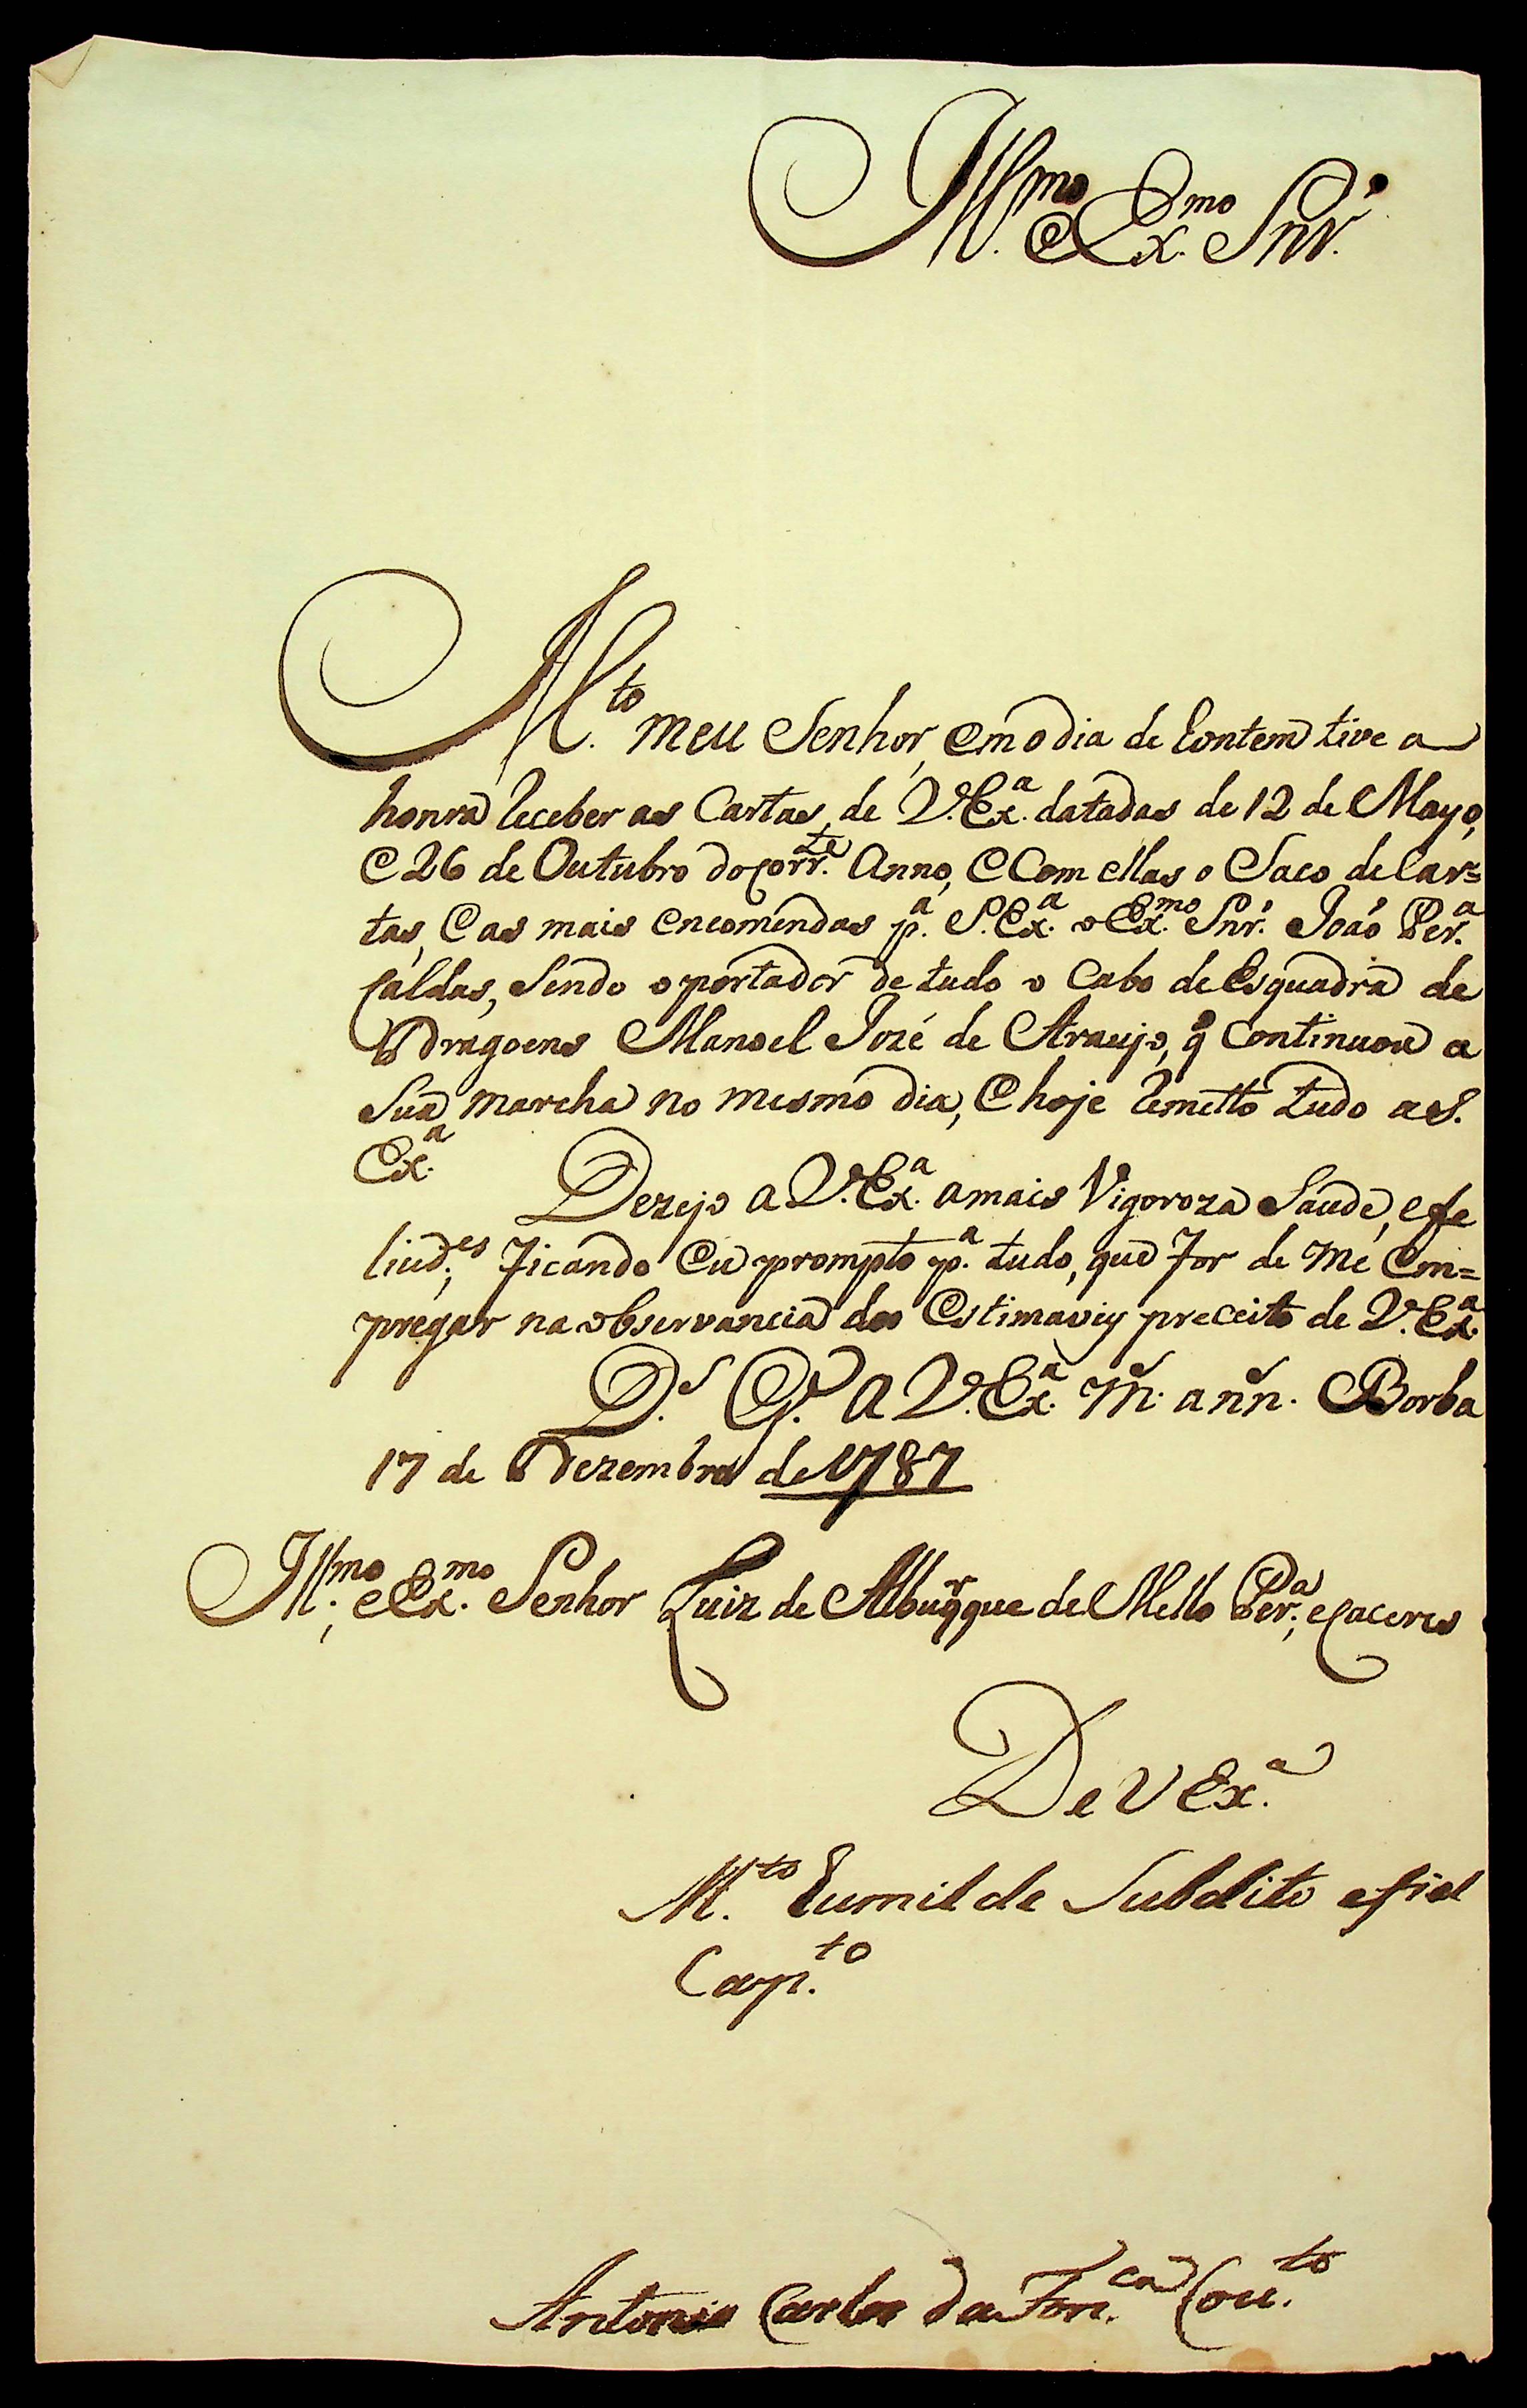 Ill.mo e Ex.mo Snr.
M.to meu Senhor, em o dia de hontem tive a
honra receber as Cartas, de V. Ex.a datadas de 12 de Mayo,
e 26 de Outubro do corr.te Anno, e Com ellas o Saco de Car=
tas, e as mais encomendas p.a S. Ex.a o Ex.mo Snr. João Per.a
Caldas, sendo o portador de tudo o Cabo de Esquadra de
Dragoens Manoel José de Araujo, q̃ continuou a
Sua marcha no mesmo dia, e hoje remetto tudo a S.
Ex.a
Dezejo a V. Ex.a a mais Vigoroza Saude, e fe
licid.es ficando eu prompto p.a tudo, que for de me Em=
pregar na observancia dos Estimaveis preceito de V. Ex.a
D.s G.e a V. Ex.a m. ann. Borba
17 de Dezembro de 1787
Ill.mo e Ex.mo Senhor Luiz de Albuqr.que de Mello Per.a e Caceres
De V Ex.a
M.to humilde Subdito e fiel
Cap.to
Antonio Carlos da Fon.ca Cou.to